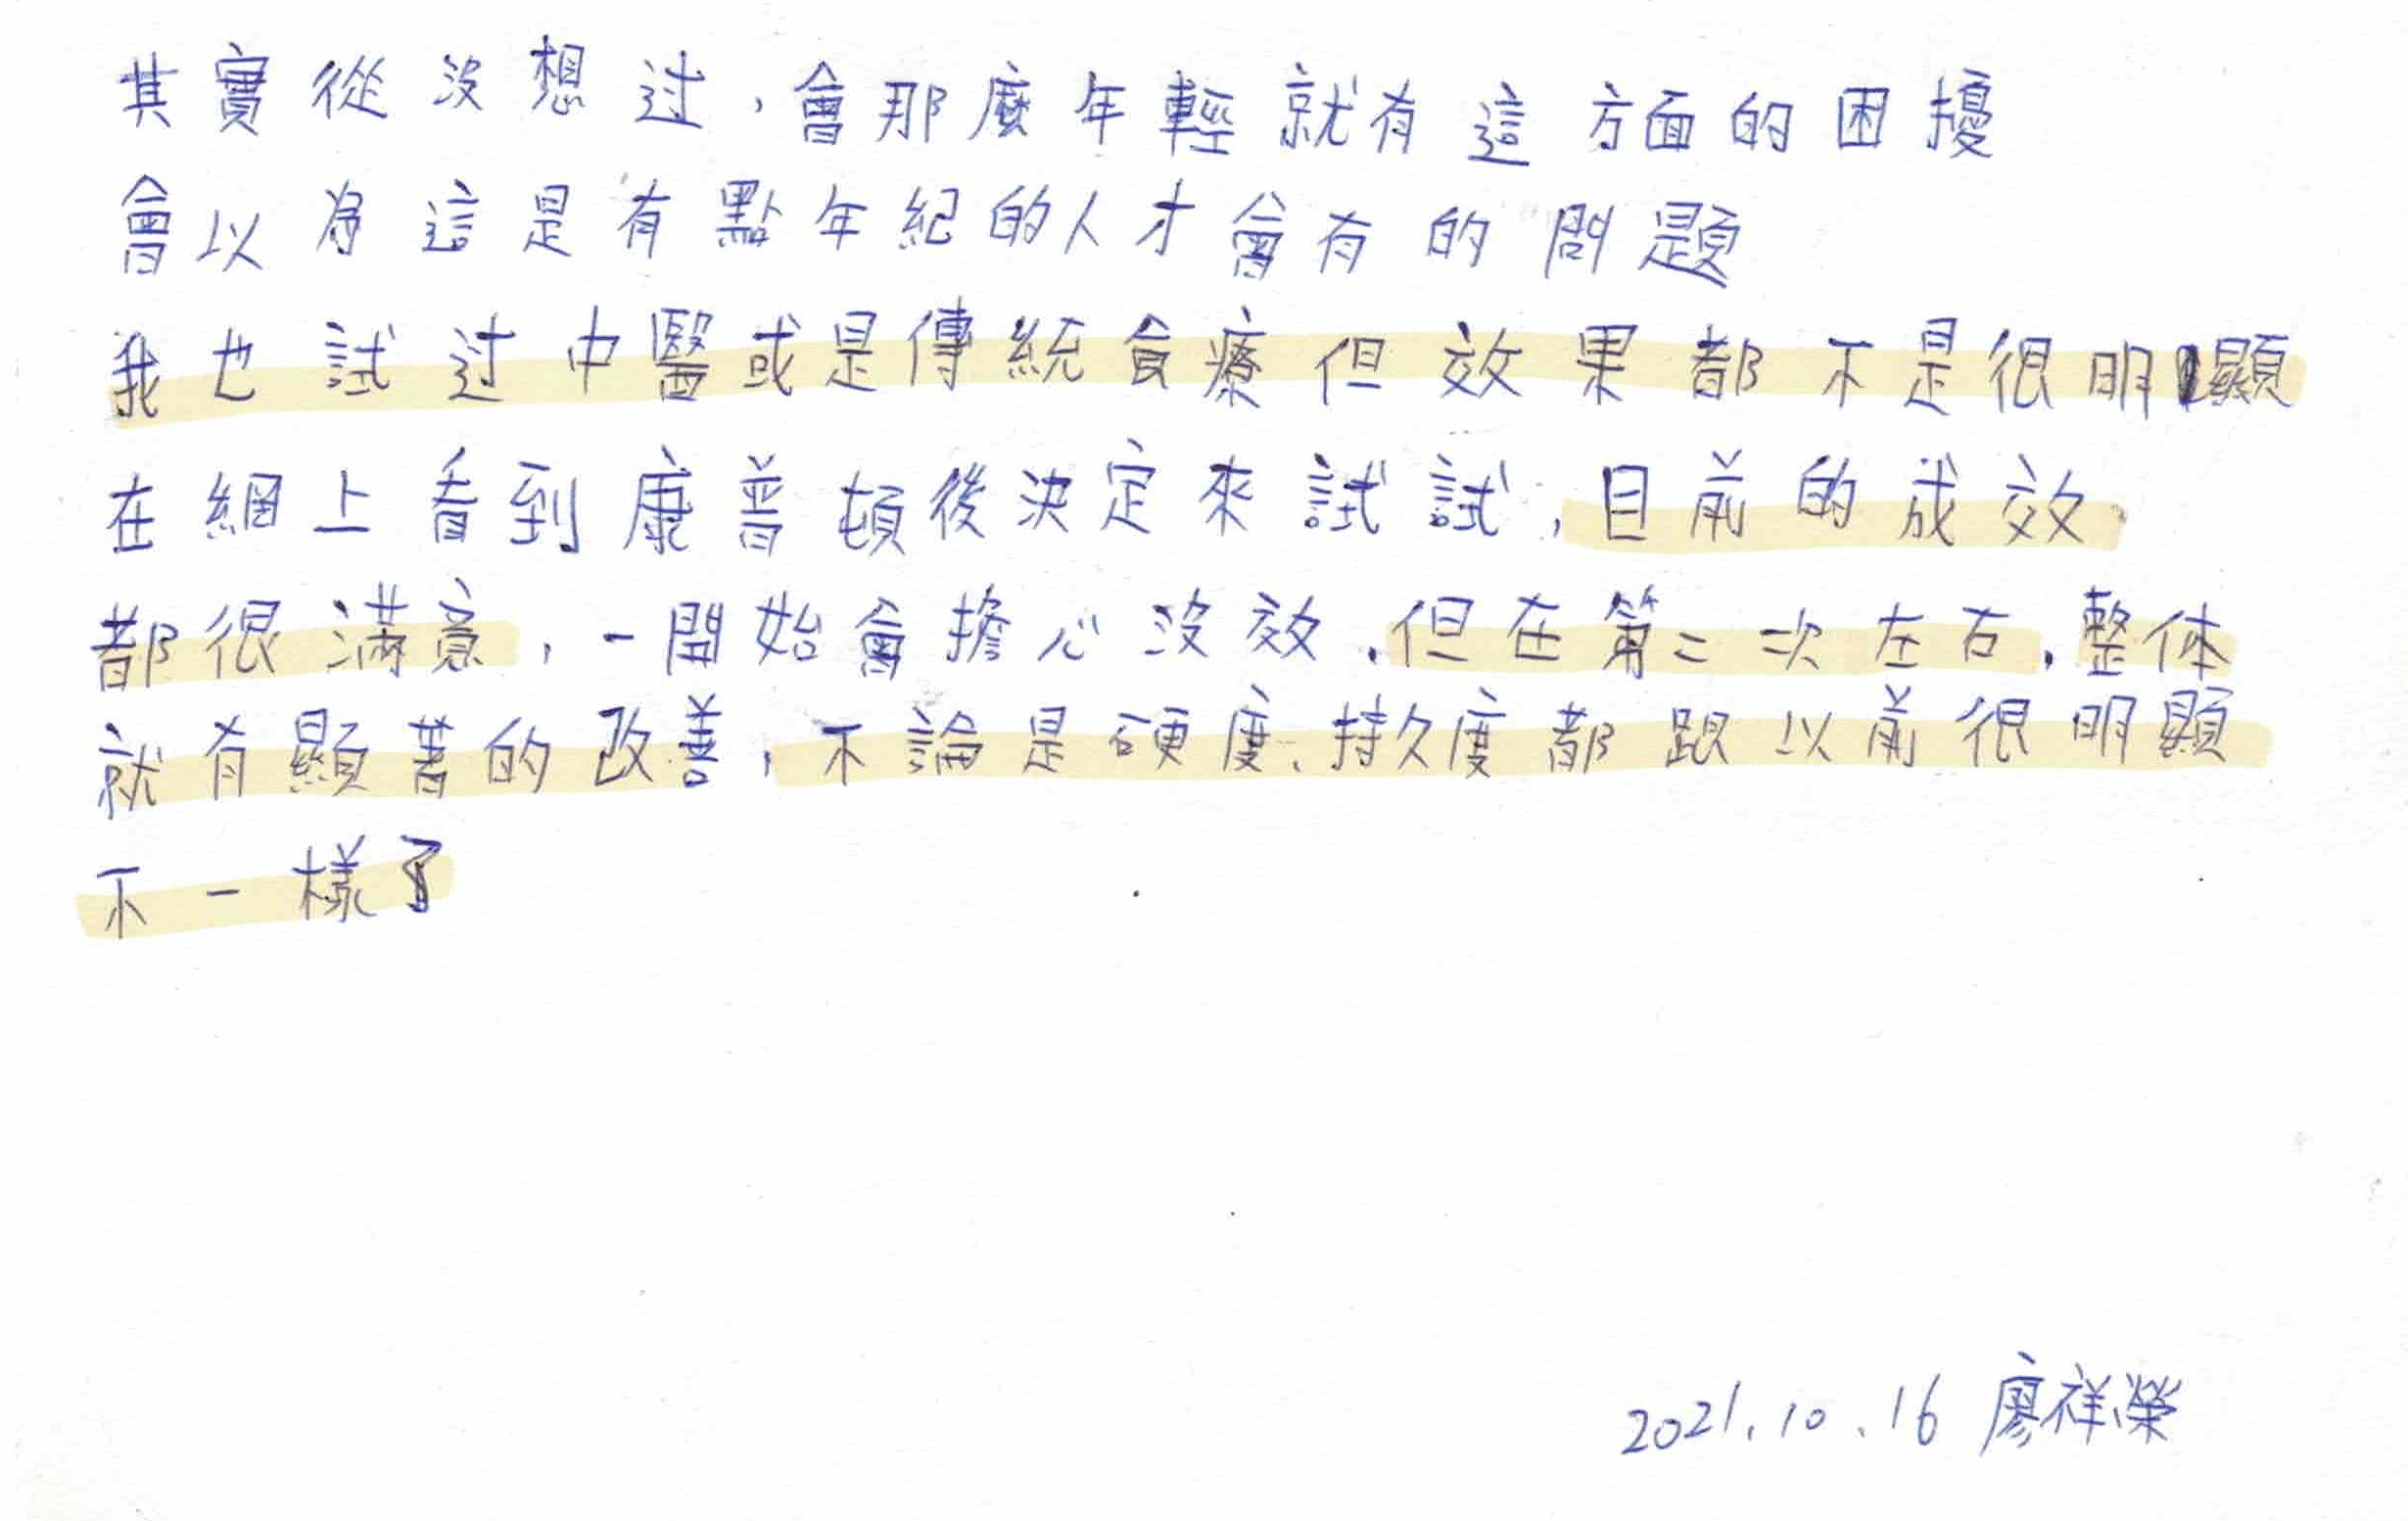 其實從沒想过，會那麼年輕就有這方面的困擾
會以為這是有點年紀的人才會有的問題
我也試过中醫或是傳統食療但效果都不是很明顯
在網上看到康普頓後決定來試試，目前的成效
都很滿意，一開始會擔心沒效，但在第二次左右，整体
就有顯著的改善，不論是硬度、持久度都跟以前很明顯
不一樣了
2021.10.16 廖祥榮